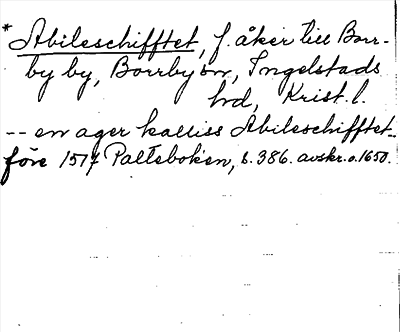 * Abileschifftet, f. åker till Borr-
by by, Borrby sn, Ingelstads
hd, Krist. l.
-- en ager kalliss Abileschifftet
före 1517 Palteboken, s. 386. avskr. o. 1650.